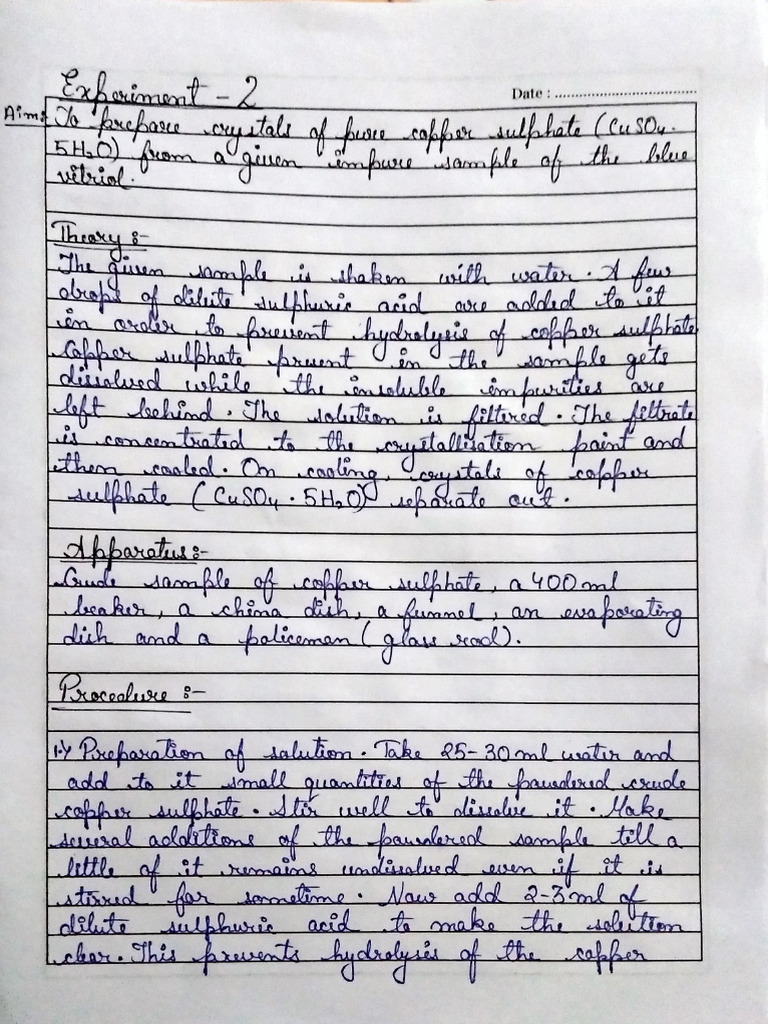 Experiment - 2
Date : ....................................
Aim:- To prepare crystals of pure copper sulphate (CuSO4.
5H2O) from a given impure sample of the blue
vitriol.
Theory :-
The given sample is shaken with water. A few
drops of dilute sulphuric acid are added to it
in order to prevent hydrolysis of copper sulphate
Copper sulphate present in the sample gets
dissolved while the insoluble impurities are
left behind. The solution is filtered. The filtrate
is concentrated to the crystallisation point and
then cooled. On cooling, crystals of copper
sulphate (CuSO4 . 5H2O) separate out.
Apparatus:-
Crude sample of copper sulphate, a 400 ml
beaker, a china dish, a funnel, an evaporating
dish and a policeman (glass rod).
Procedure :-
1.) Preparation of solution. Take 25-30 ml water and
add to it small quantities of the powdered crude
copper sulphate. Stir well to dissolve it. Make
several additions of the powdered sample till a
little of it remains undissolved even if it is
stirred for sometime. Now add 2-3 ml of
dilute sulphuric acid to make the solution
clear. This prevents hydrolysis of the copper